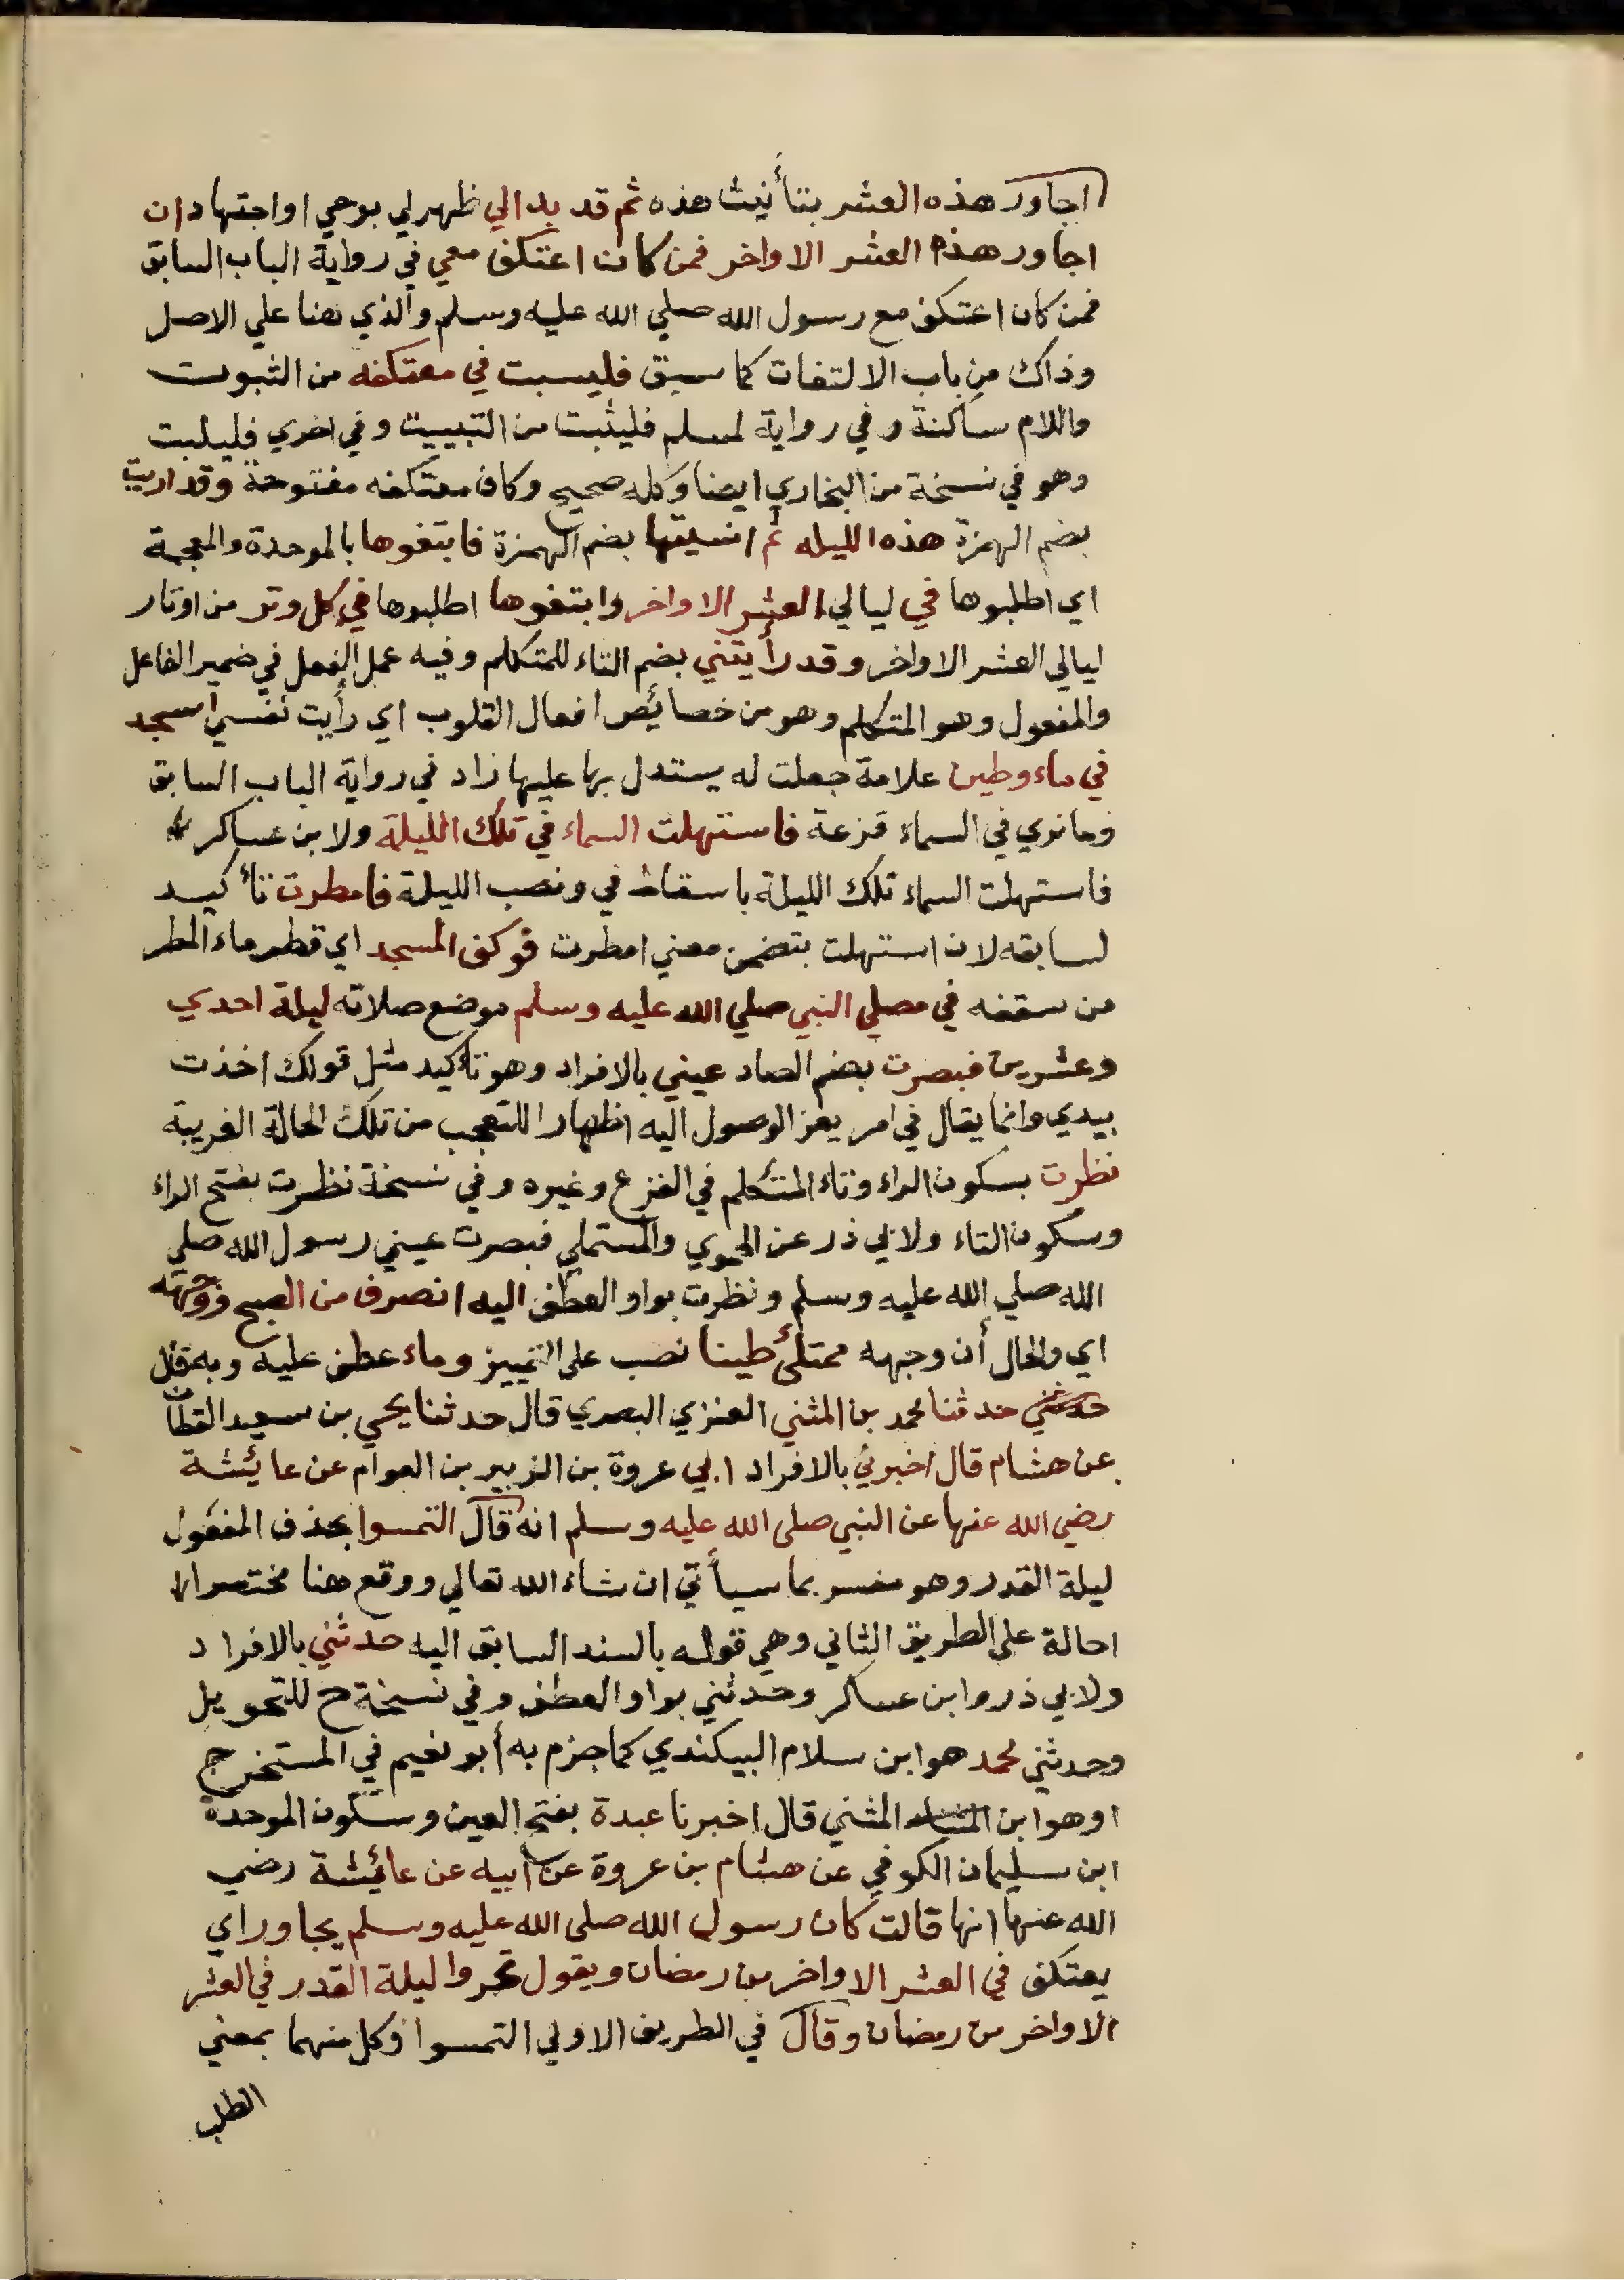 اجاور هذه العشر بتأنيث هذه ثم قد بدالي ظهرلي بوحي او اجتهاد ان
اجاور هذه العشر الاواخر فمن كان اعتكف معي في رواية الباب السابق
فمن كان اعتكف مع رسول الله صلي الله عليه وسلم والذي هنا علي الاصل
وذاك من باب الالتفات كما سبق فليسبت في معتكفه من الثبوت
واللام ساكنة وفي رواية لمسلم فليثبت من التبييت وفي اخري فليلبت
وهو في نسخة من البخاري ايضا وكله صحيح وكاف معتكفه مفتوحة وقد اريت
بضم الهمزة هذه الليله ثم انسيتها بضم الهمزة فابتغوها بالموحدة والمعجمة
اي اطلبوها في ليالي العشر الاواخر وابتغوها اطلبوها في كل وتر من اوتار
ليالي العشر الاواخر وقد رأيتني بضم التاء للمتكلم وفيه عمل الفعل في ضمير الفاعل
والمفعول وهو المتكلم وهو من خصائص افعال القلوب اي رأيت نفسي اسجد
في ماء وطين علامة جعلت له يستدل بها عليها زاد في رواية الباب السابق
وما نري في السماء قزعة فاستهلت السماء في تلك الليلة ولابن عساكر
فاستهلت السماء تلك الليلة باسقاط في ونصب الليلة فامطرت تأكيد
لسابقه لان استهلت بتضمن معني امطرت فوكف المسجد اي قطر ماء المطر
من سقفه في مصلي النبي صلي الله عليه وسلم موضع صلاته ليلة احدي
وعشرين فبصرت بضم الصاد عيني بالافراد وهو تأكيد مثل قولك اخذت
بيدي وانما يقال في امر يعز الوصول اليه اظهارا للتعجب من تلك الحالة الغريبة
نظرت بسكون الراء وتاء المتكلم في الفرع وغيره وفي نسخة نظرت بفتح الراء
وسكون التاء ولابي ذر عن الحموي والمستملي فبصرت عيني رسول الله صلي
الله صلي الله عليه وسلم ونظرت بواو العطف اليه انصرف من الصبح ووجهه
اي والحال أن وجهه ممتلئ طينا نصب على التمييز وماء عطف عليه وبه قال
حدثني حدثنا محمد بن المثني العنزي البصري قال حدثنا يحيي بن سعيد القطان
عن هشام قال اخبرني بالافراد ابي عروة بن الزبير بن العوام عن عايئشة
رضي الله عنها عن النبي صلى الله عليه وسلم انه قال التمسوا بحذف المفعول
ليلة القدر وهو مفسر بما سيأتي ان شاء الله تعالي ووقع هنا مختصرا
احالة على الطريق الثاني وهي قوله بالسند السابق اليه حدثني بالافراد
ولابي ذر وابن عساكر وحدثني بواو العطف وفي نسخة ح للتحويل
وحدثني محمد هو ابن سلام البيكندي كما جزم به أبو نعيم في المستخرج
او هو ابن المثني قال اخبرنا عبدة بفتح العين وسكون الموحدة
ابن سليمان الكوفي عن هشام بن عروة عن ابيه عن عائيشة رضي
الله عنها انها قالت كان رسول الله صلى الله عليه وسلم يجاور اي
يعتكف في العشر الاواخر من رمضان ويقول تحروا ليلة القدر في العشر
الاواخر من رمضان وقال في الطريق الاولي التمسوا وكل منهما بمعني
الطلب